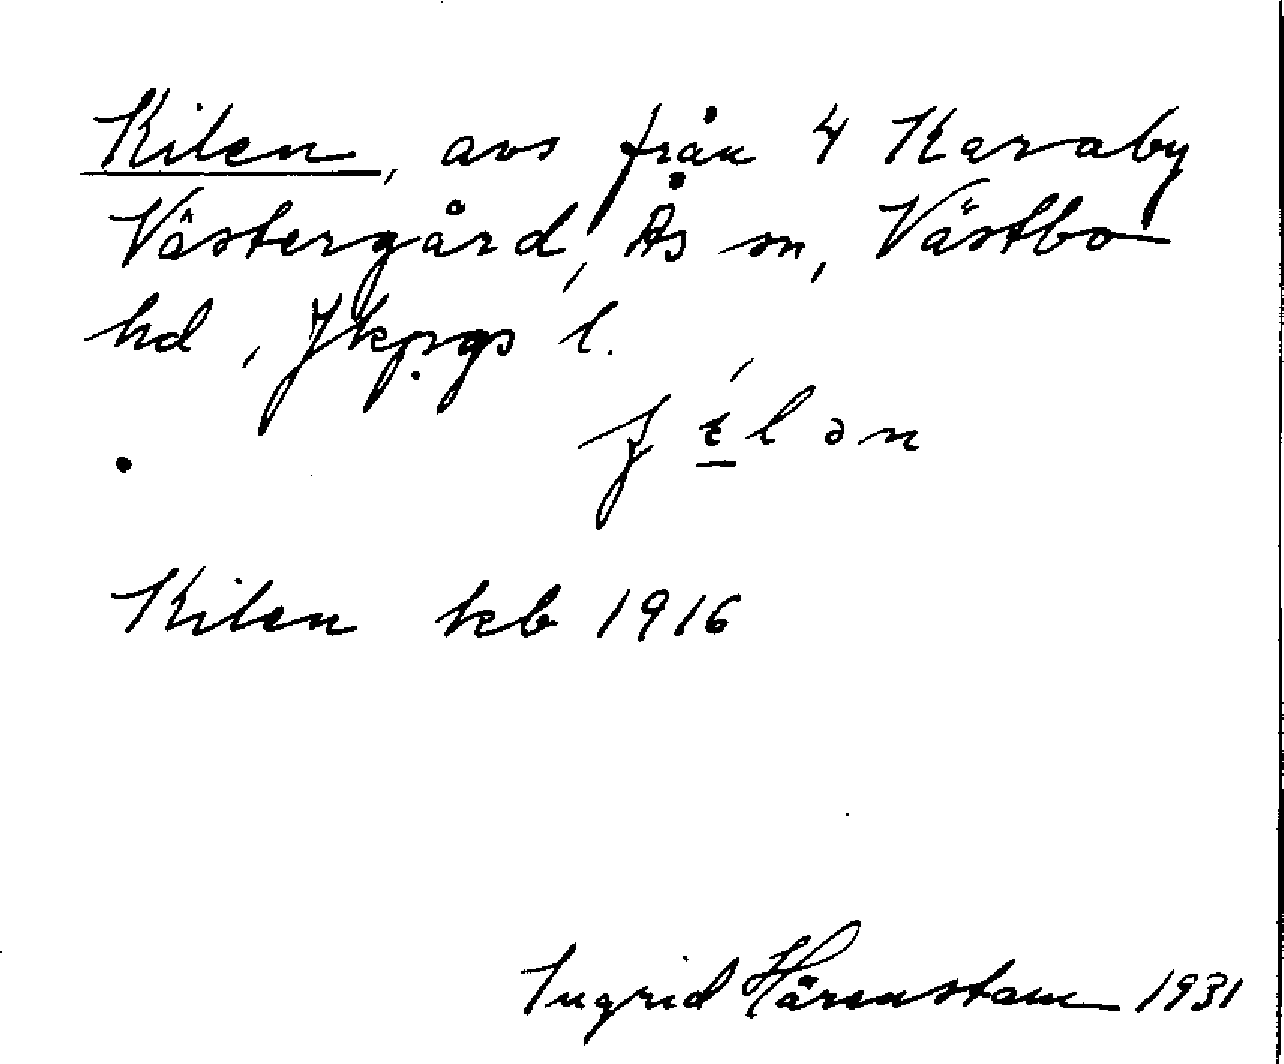 Kilen, avs från 4 Karaby
Västergård, Ås sn, Västbo
hd, Jkpgs l.
Kilen kb 1916
Ingrid Härenstam 1931